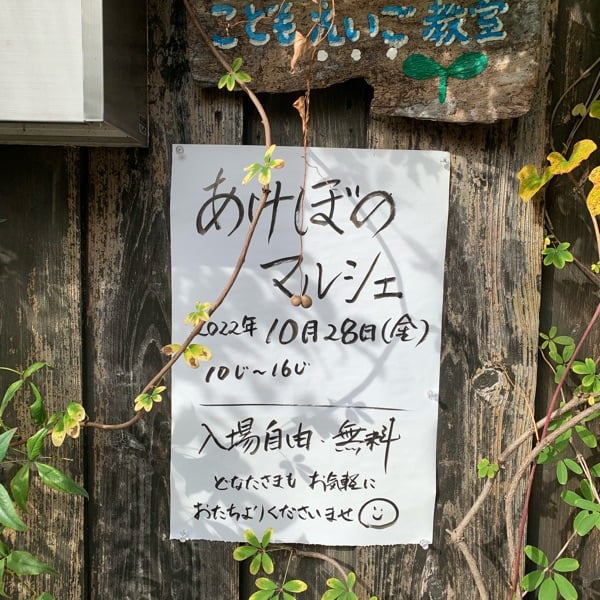 こどもえいご教室
あけぼの
マルシェ
2022年 10月28日(金)
10じ~16じ
入場自由・無料
どなたさまも お気軽に
おたちよりくださいませ